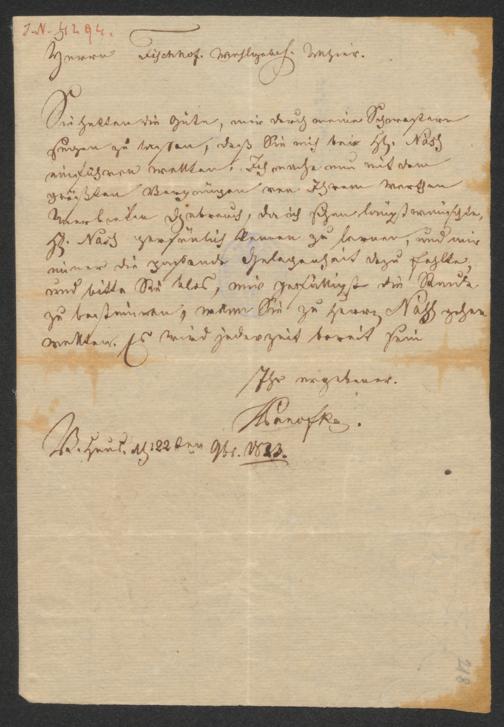 I.N. 41294.
Herrn Fischhof. Wohlgeb. Allhier.
Sie hatten die Güte, mir durch meine Schwestern
sagen zu lassen, daß Sie mich bei H. Nash
einführen wollten. Ich mache nun mit dem
größten Vergnügen von Ihrem werthen
Anerbieten Gebrauch, da ich schon längst wünschte,
H. Nash persönlich kennen zu lernen, und mir
immer die passende Gelegenheit dazu fehlte,
und bitte Sie also, mir gefälligst die Stunde
zu bestimmen, wann Sie zu Herrn Nash gehen
wollen. Es wird jederzeit bereit sein
Ihr ergebener.
HPanofka.
V. Haus. den 9br. 1823.
218